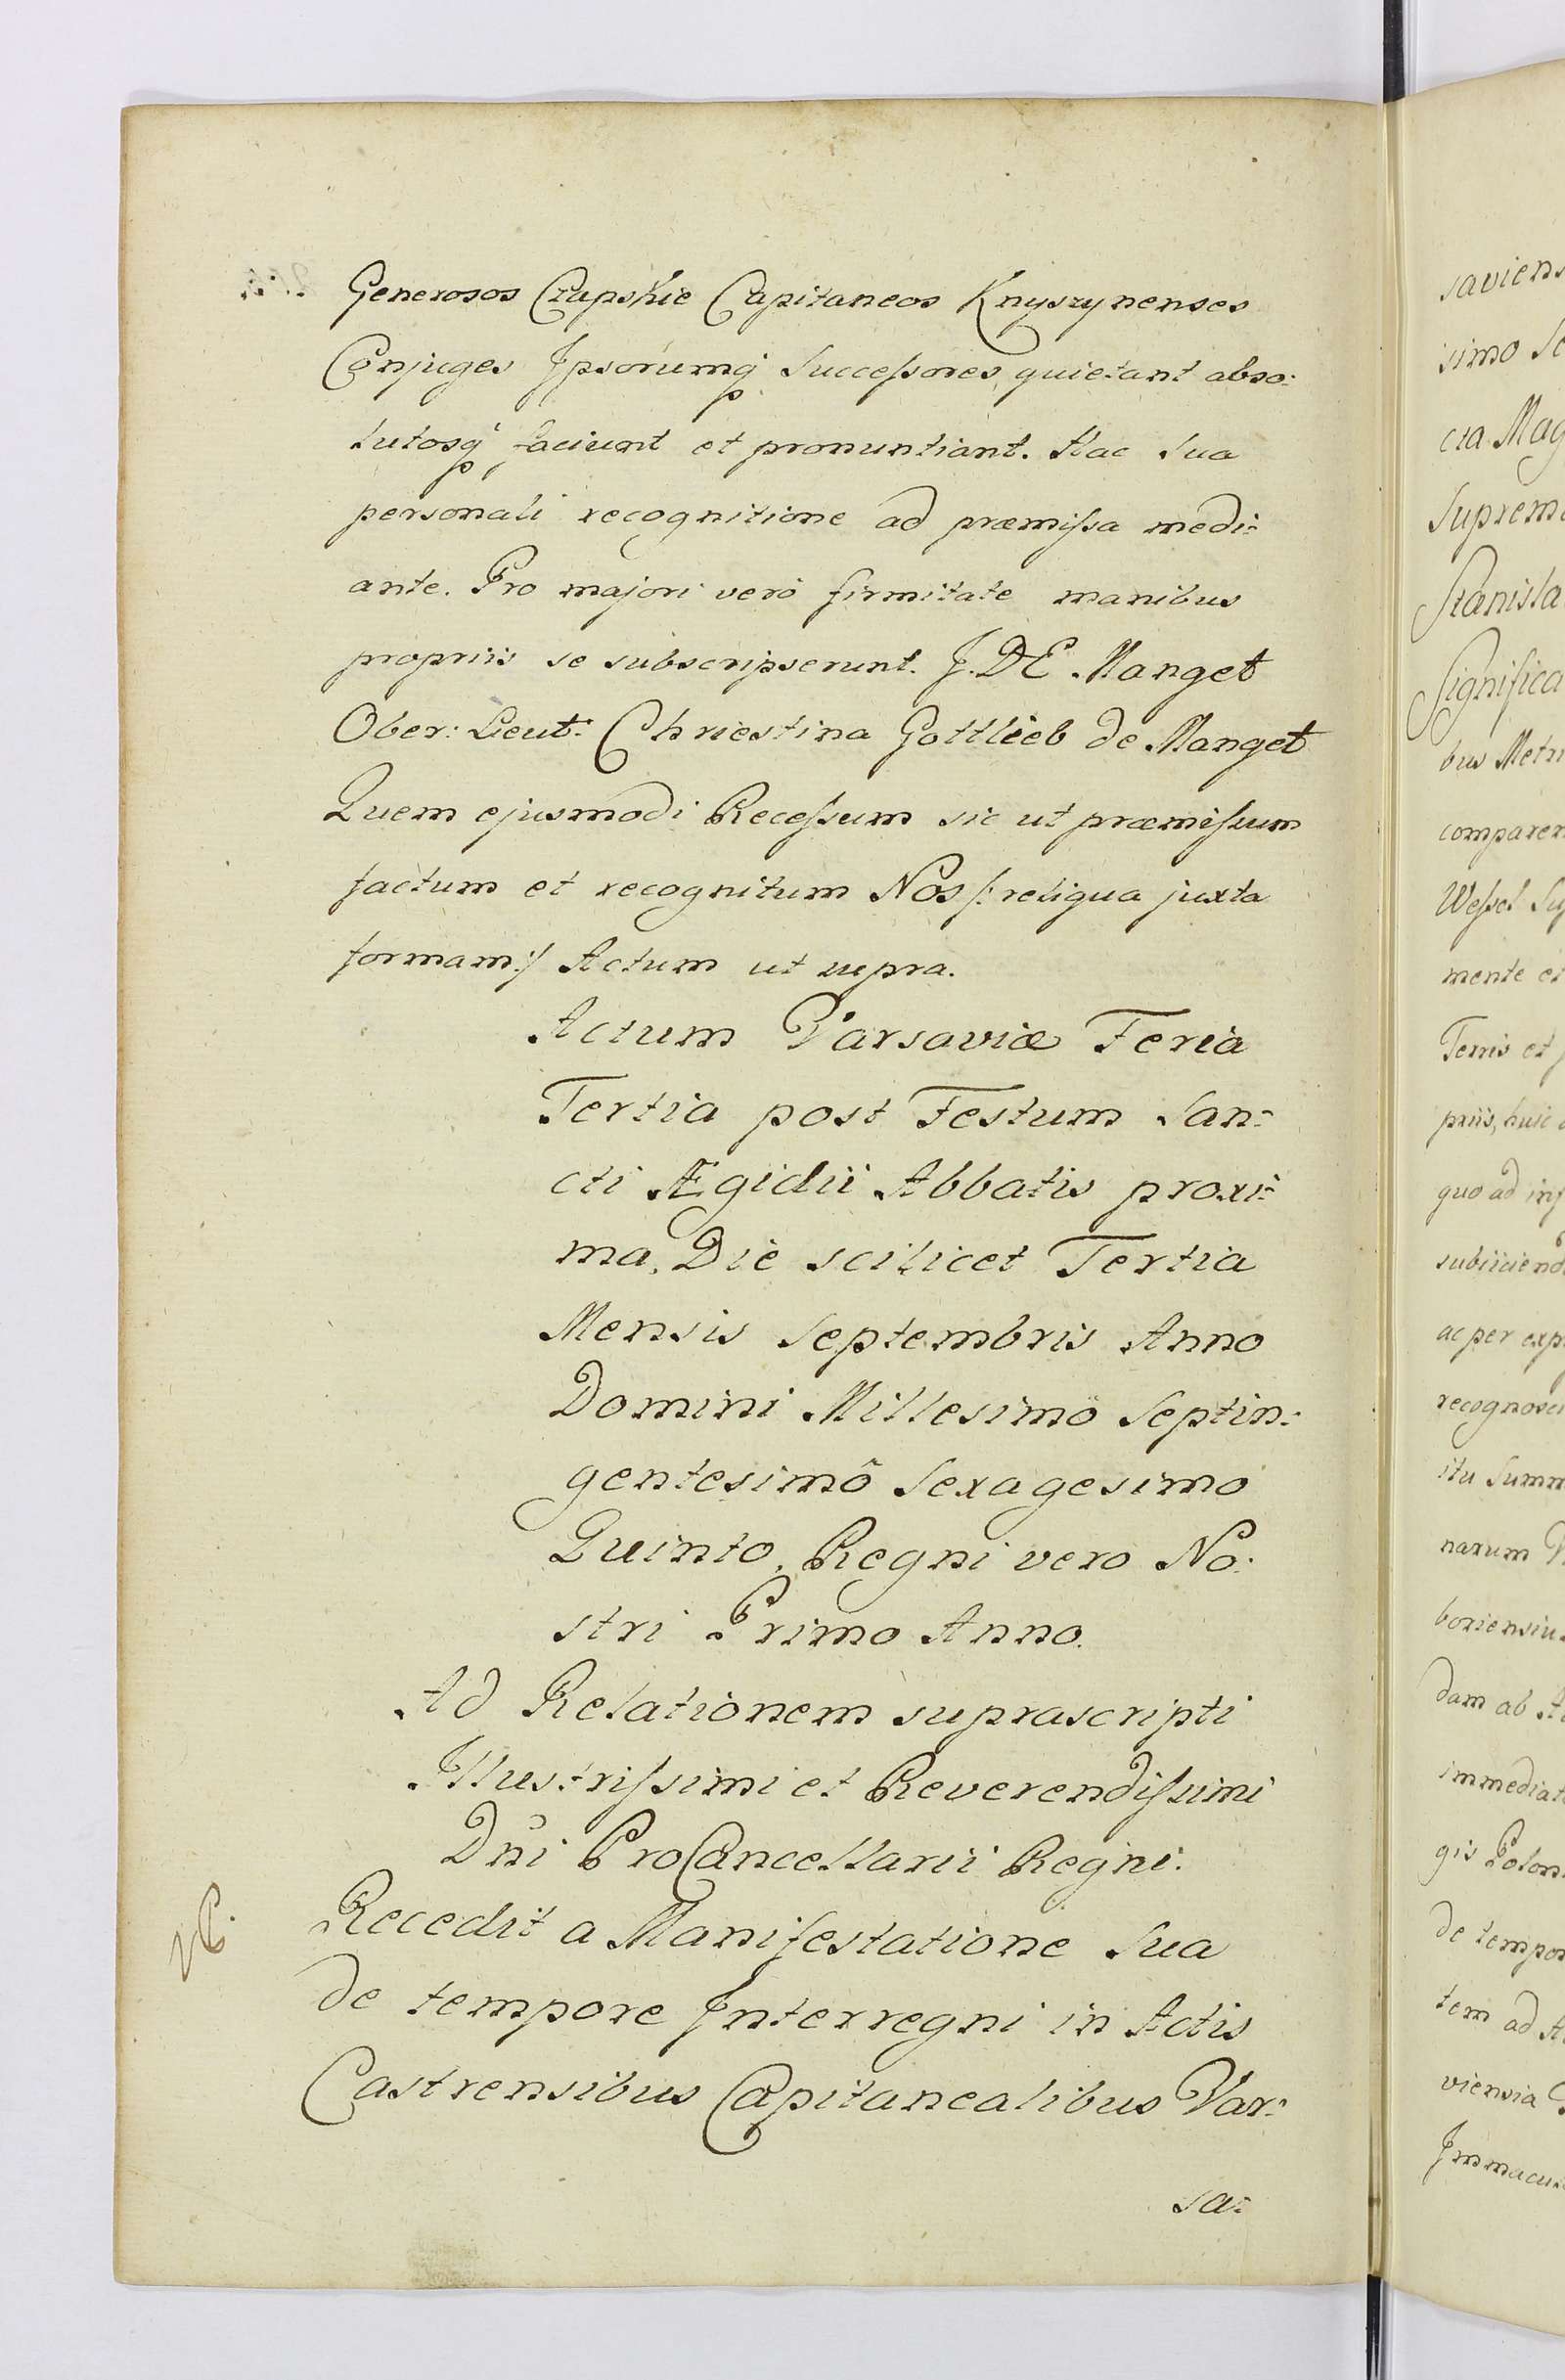 Generosos Czapskie Capitaneos Knyszynenses
Conjuges Ipsorumq́ Successores quietant abso:
lutosq́ faciunt et pronuntiant. Hac Sua
personali recognitione ad præmissa medi:
ante. Pro majori verò firmitate manibus
propriis se subscripserunt. J. D E. Manget
Ober: Leut: Chriestina Gottlieb de Manget
Quem ejusmodi Recessum sic ut præmissum
factum et recognitum Nos /: reliqua juxta
formam :/ Actum ut supra.
Actum Varsaviæ Feria
Tertia post Festum San:
cti Ægidii Abbatis proxi:
ma, Die scilicet Tertia
Mensis Septembris Anno
Domini Millesimô Septin:
gentesimô Sexagesimo
Quinto, Regni vero No:
stri Primo Anno.
Ad Relationem suprascripti
Illustrissimi et Reverendissimi
Dñi ProCancellarii Regni.
Recedit a Manifestatione Sua
de tempore Interregni in Actis
Castrensibus Capitanealibus Var:
sa:
saviens
isimo
cra Mag
Suprem
Stanisla
Significa
bus Metri
comparen
Wessel Su
mente et
Terris et
priis, huic
quo ad
subiiciend
ac per exp
recognosci
itu Summ
narum
boriensiu
dam ab
immediat
gis Polon
de tempor
tem ad
viensia
Immacu